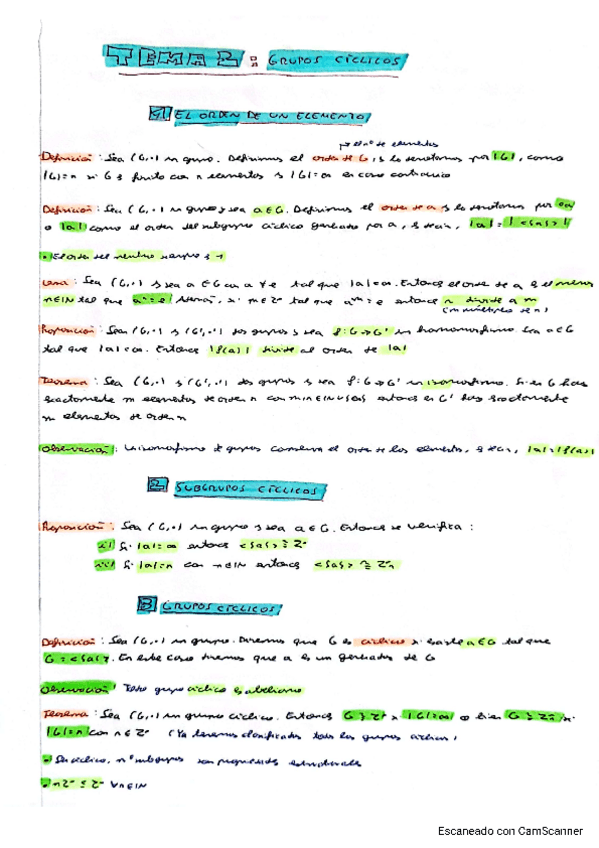 TEMA 2: GRUPOS CÍCLICOS
1 EL ORDEN DE UN ELEMENTO
el nº de elementos
Definición: Sea (G,·) un grupo. Definimos el orden de G, y lo denotamos por |G|, como
|G|=n si G es finito con n elementos y |G|=∞ en caso contrario
Definición: Sea (G,·) un grupo y sea a∈G. Definimos el orden de a y lo denotamos por
o |a| como el orden del subgrupo cíclico generado por a, es decir, |a|=|<{a}>|
El orden del neutro siempre es 1
Lema: Sea (G,·) y sea a∈G con a≠e tal que |a|<∞. Entonces el orden de a es el menor
n∈ℕ tal que aⁿ=e. Además, si m∈ℤ tal que aᵐ=e entonces n divide a m
(m múltiplo de n)
Proposición: Sean (G,·) y (G',·) dos grupos y sea f: G→G' un homomorfismo. Sea a∈G
tal que |a|<∞. Entonces |f(a)| divide al orden de |a|
Teorema: Sea (G,·) y (G',·) dos grupos y sea f: G→G' un isomorfismo. Si en G hay
exactamente m elementos de orden n con m,n∈ℕ∪{∞} entonces en G' hay exactamente
m elementos de orden n
Observación: Un isomorfismo de grupos conserva el orden de los elementos, es decir, |a|=|f(a)|
2 SUBGRUPOS CÍCLICOS
Proposición: Sea (G,·) un grupo y sea a∈G. Entonces se verifica:
i) Si |a|=∞ entonces <{a}>≅ℤ
ii) Si |a|=n con n∈ℕ entonces <{a}>≅ℤn
3 GRUPOS CÍCLICOS
Definición: Sea (G,·) un grupo. Diremos que G es cíclico si existe a∈G tal que
G=<{a}>. En este caso diremos que a es un generador de G
Observación: Todo grupo cíclico es abeliano
Teorema: Sea (G,·) un grupo cíclico. Entonces G≅ℤ si |G|=∞ o bien G≅ℤn si
|G|=n con n∈ℤ⁺ (Ya tenemos clasificados todos los grupos cíclicos)
Ser cíclico, nº subgrupos son propiedades estructurales
nℤ≅ℤ ∀n∈ℕ
Escaneado con CamScanner